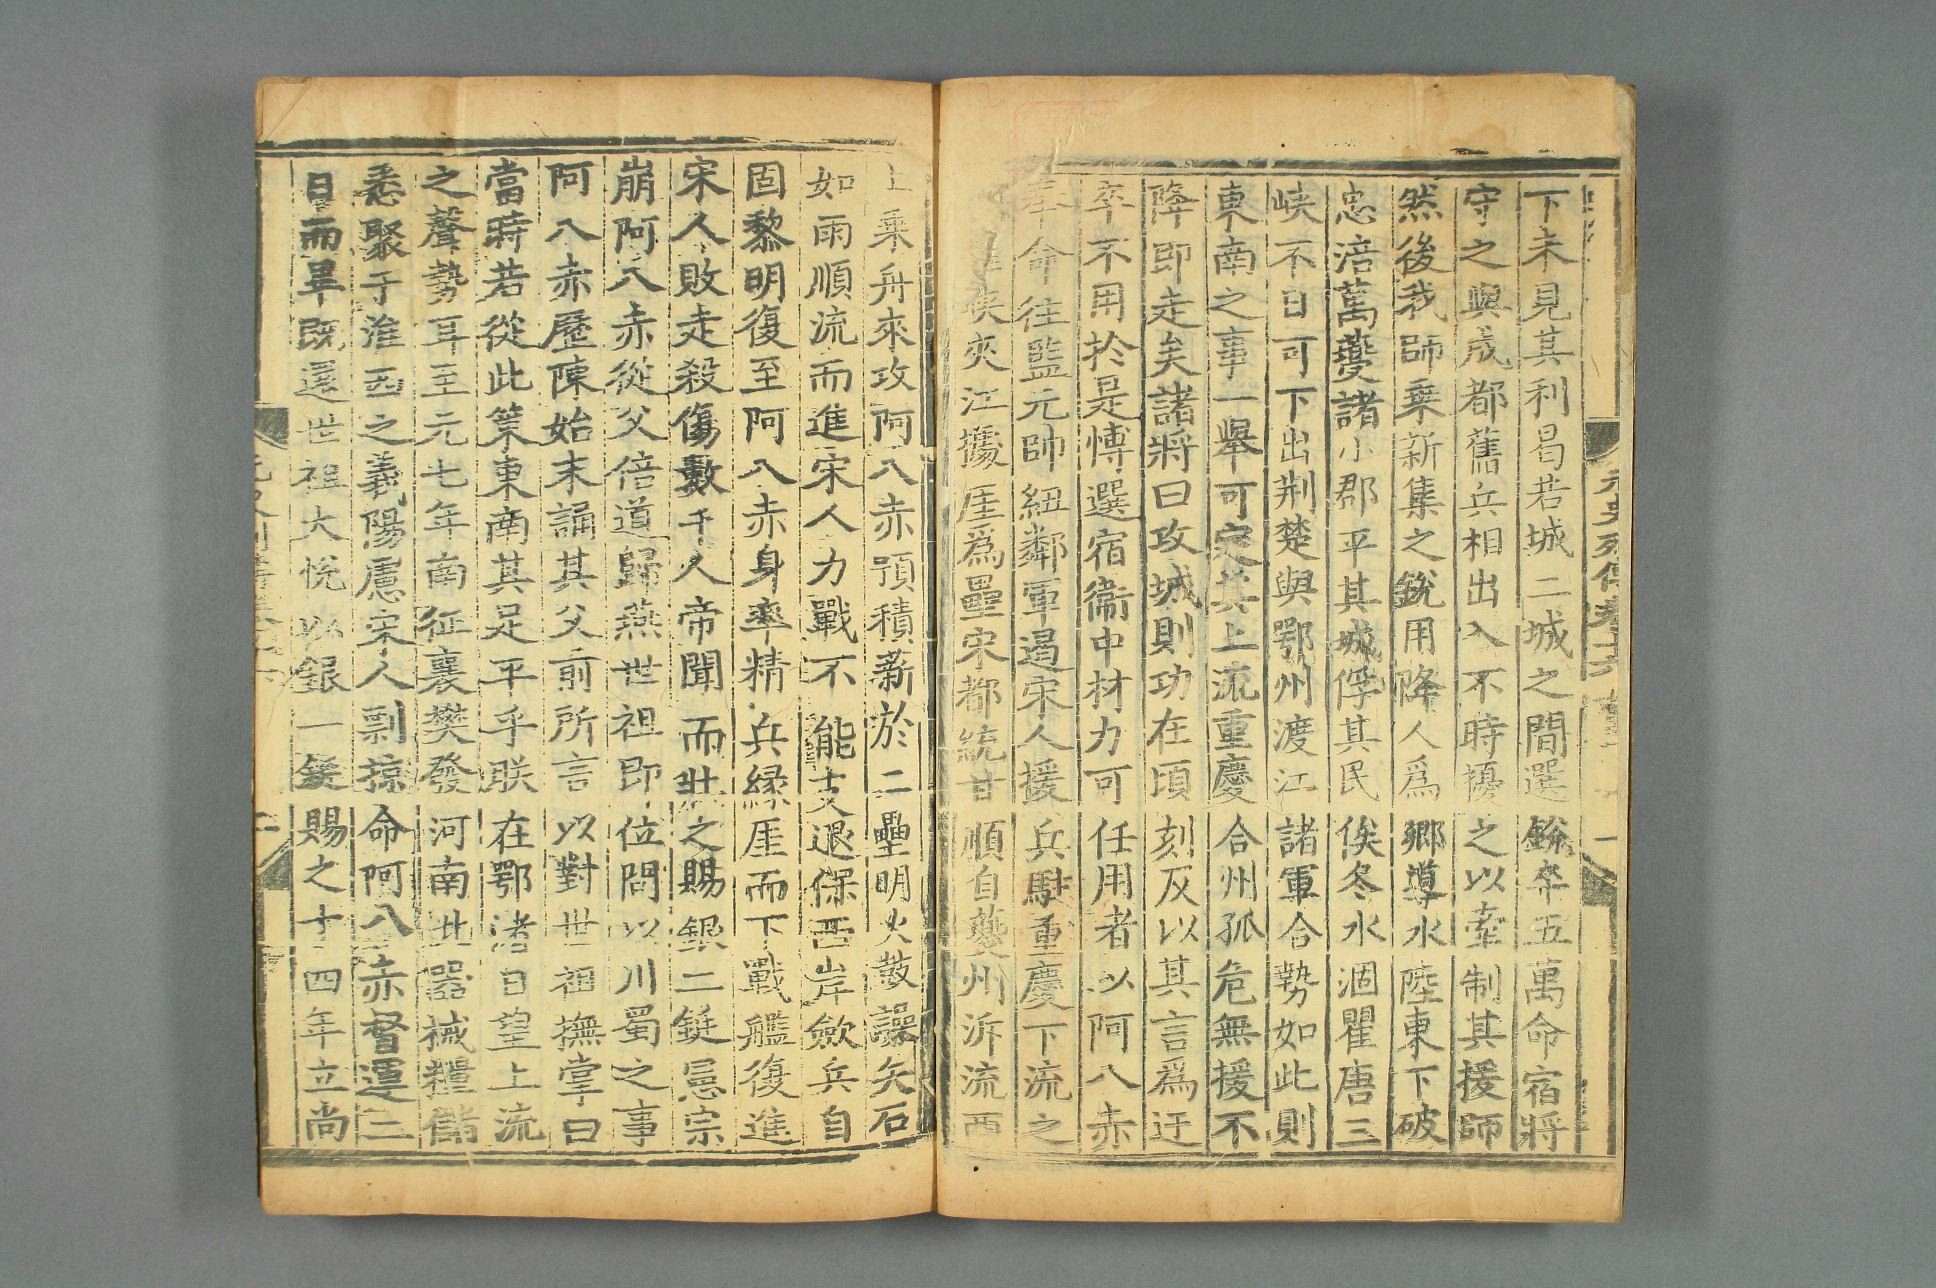 下未見其利曷若城二城之間選銳卒五萬命宿將
守之與成都舊兵相出入不時擾之以牽制其援師
然後我師乘新集之銳用降人爲鄉導水陸東下破
忠涪萬夔諸小郡平其城俘其民俟冬水涸瞿唐三
峽不日可下出荆楚與鄂州渡江諸軍合勢如此則
東南之事一舉可定其上流重慶合州孤危無援不
降即走矣諸將曰攻城則功在頃刻反以其言爲迂
卒不用於是博選宿衞中材力可任用者以阿八赤
奉命往監元帥紐鄰軍遏宋人援兵駐重慶下流之
峽夾江據厓爲壘宋都統甘順自夔州泝流西
上乗舟來攻阿八赤預積薪於二壘明火鼓譟矢石
如雨順流而進宋人力戰不能支退保西岸斂兵自
固黎明復至阿八赤身率精兵緣厓而下戰艦復進
宋人敗走殺傷數千人帝聞而壯之賜銀二鋌憲宗
崩阿八赤從父倍道歸燕世祖即位問以川蜀之事
阿八赤歷陳始末誦其父前所言以對世祖撫掌曰
當時若從此策東南其足平乎朕在鄂渚日望上流
之聲勢耳至元七年南征襄樊發河南北器械糧儲
悉聚于淮西之義陽慮宋人剽掠命阿八赤督運二
日而畢既還世祖大悅以銀一鋌賜之十四年立尚